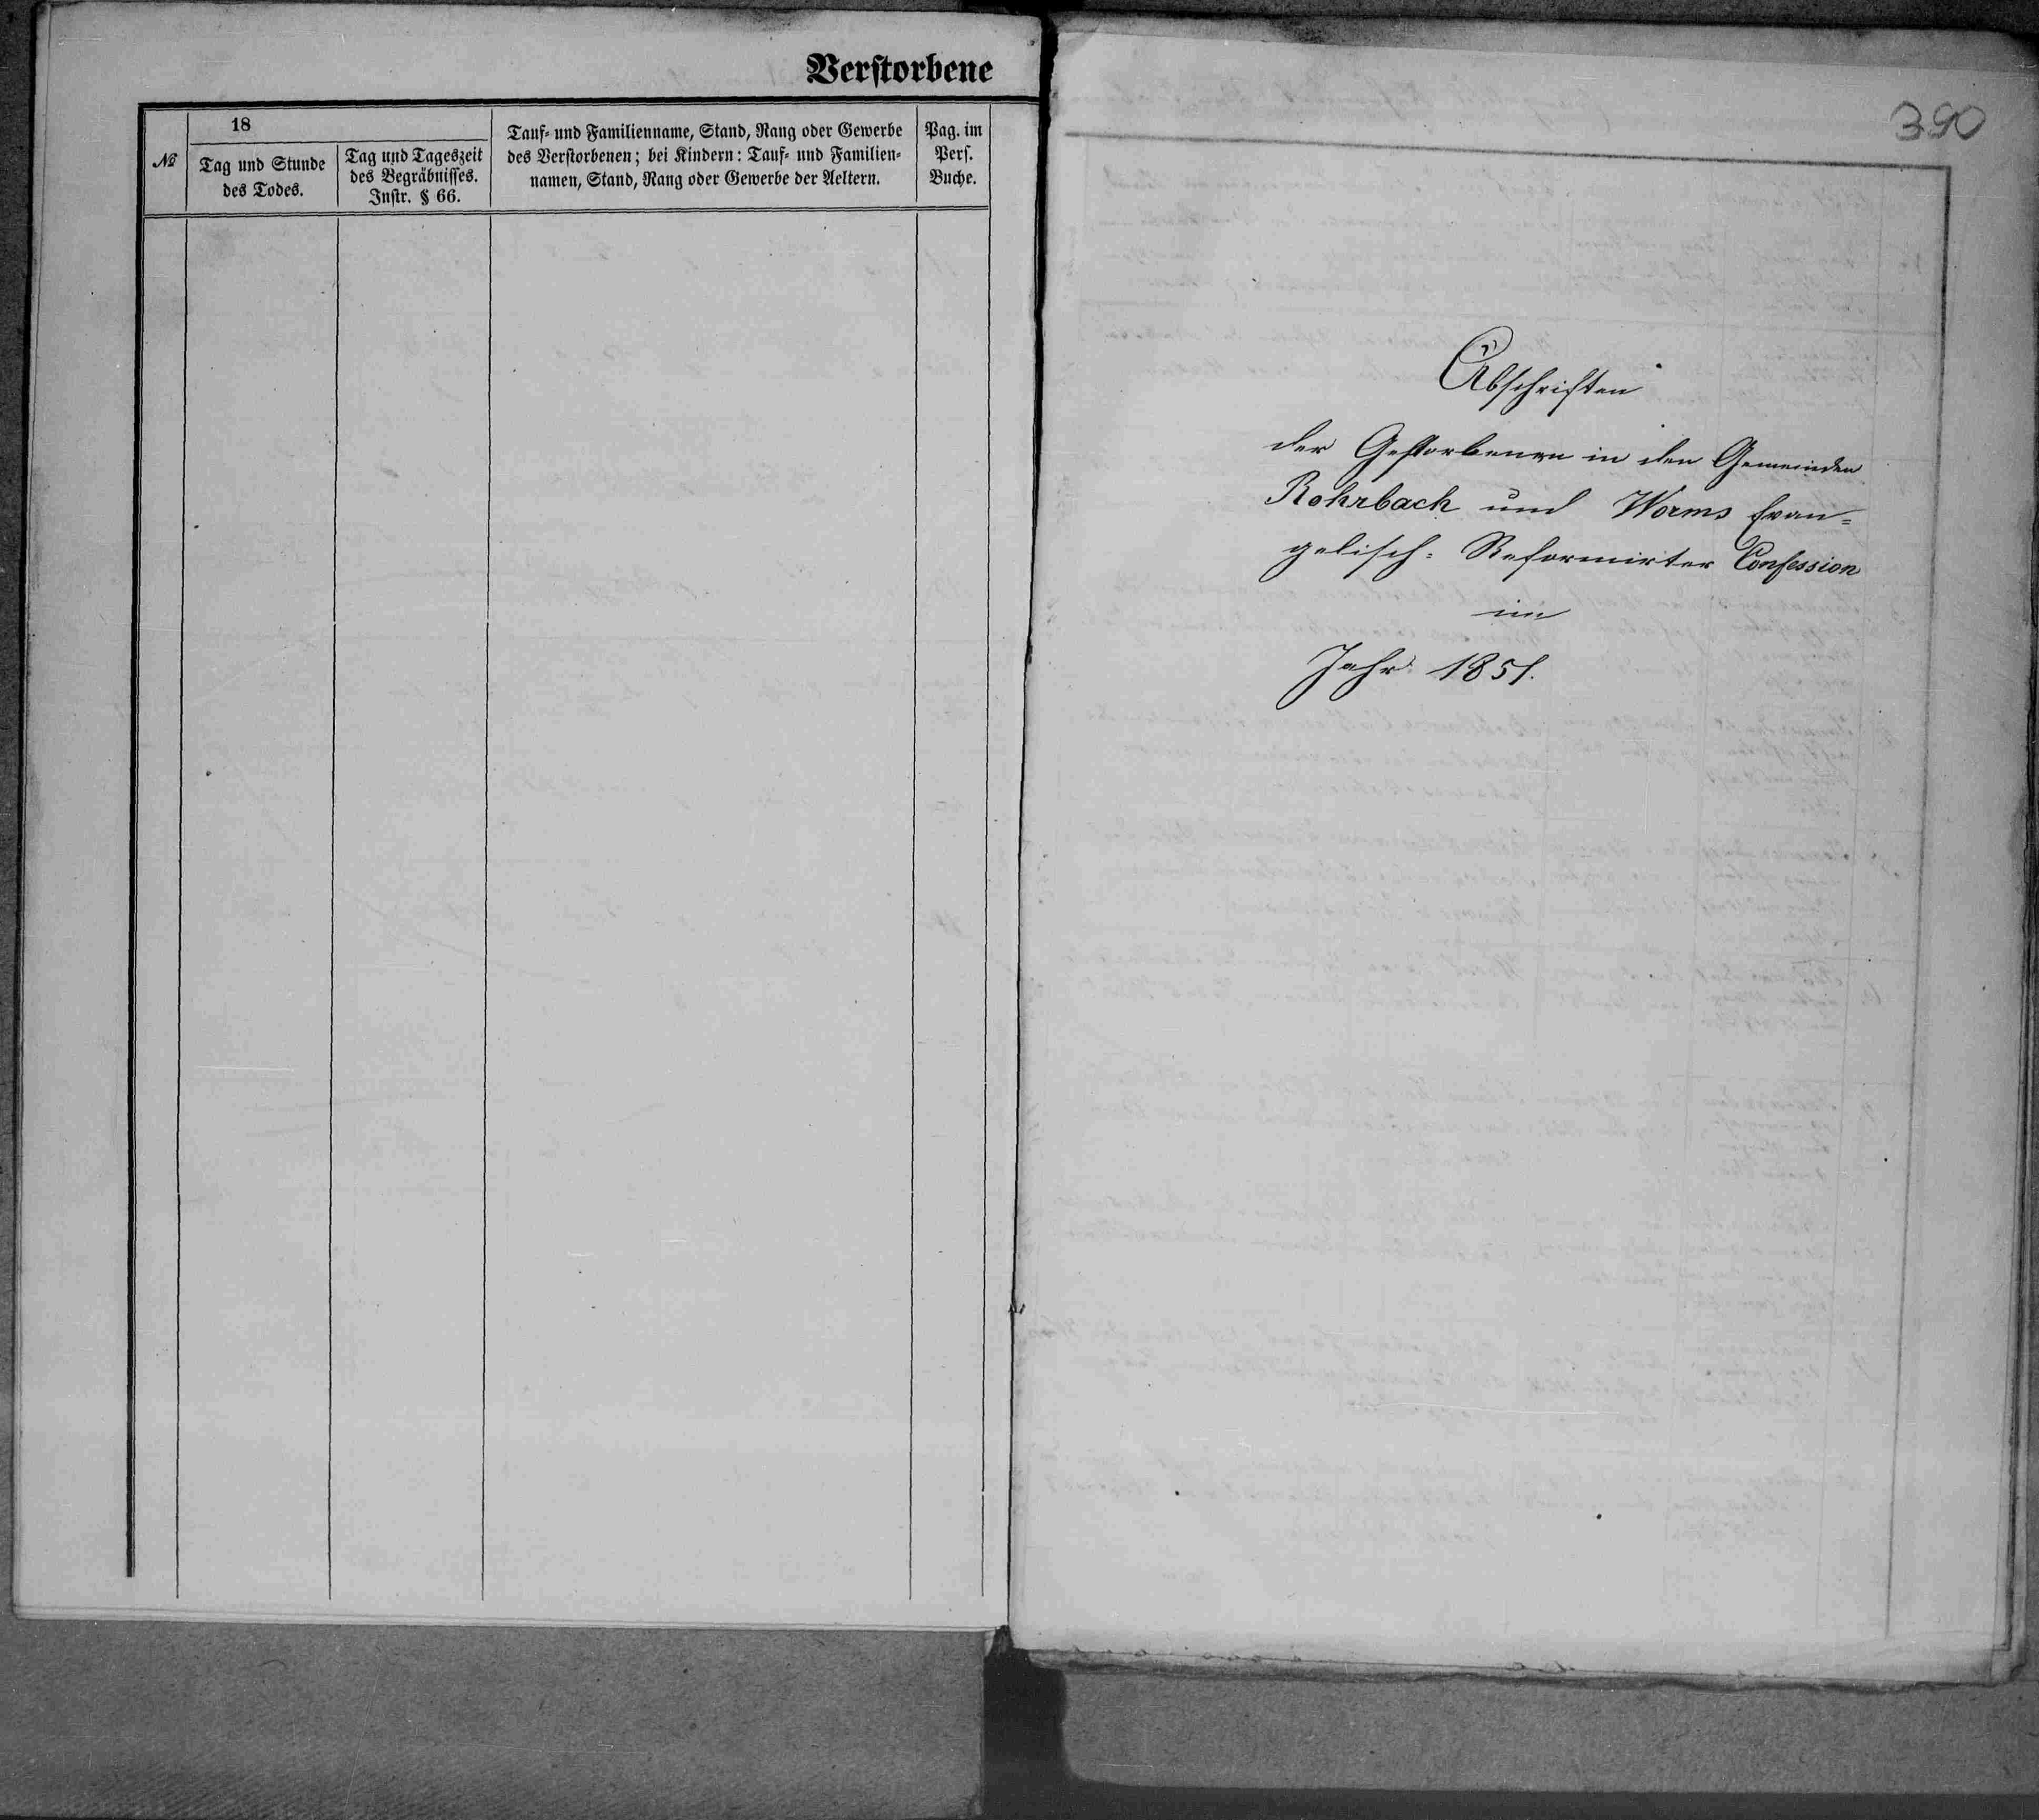 Verstorbene
№
18
Tag und Stunde
des Todes.
Tag und Tageszeit
des Begräbnisses.
Instr. § 66.
Tauf- und Familienname, Stand, Rang oder Gewerbe
des Verstorbenen; bei Kindern: Tauf- und Familien-
namen, Stand, Rang oder Gewerbe der Aeltern.
Pag. im
Pers.
Buche.
390
Abschriften
der Gestorbenen in den Gemeinden
Rohrbach und Worms Evan=
gelisch= Reformirter Confession
im
Jahr 1851.